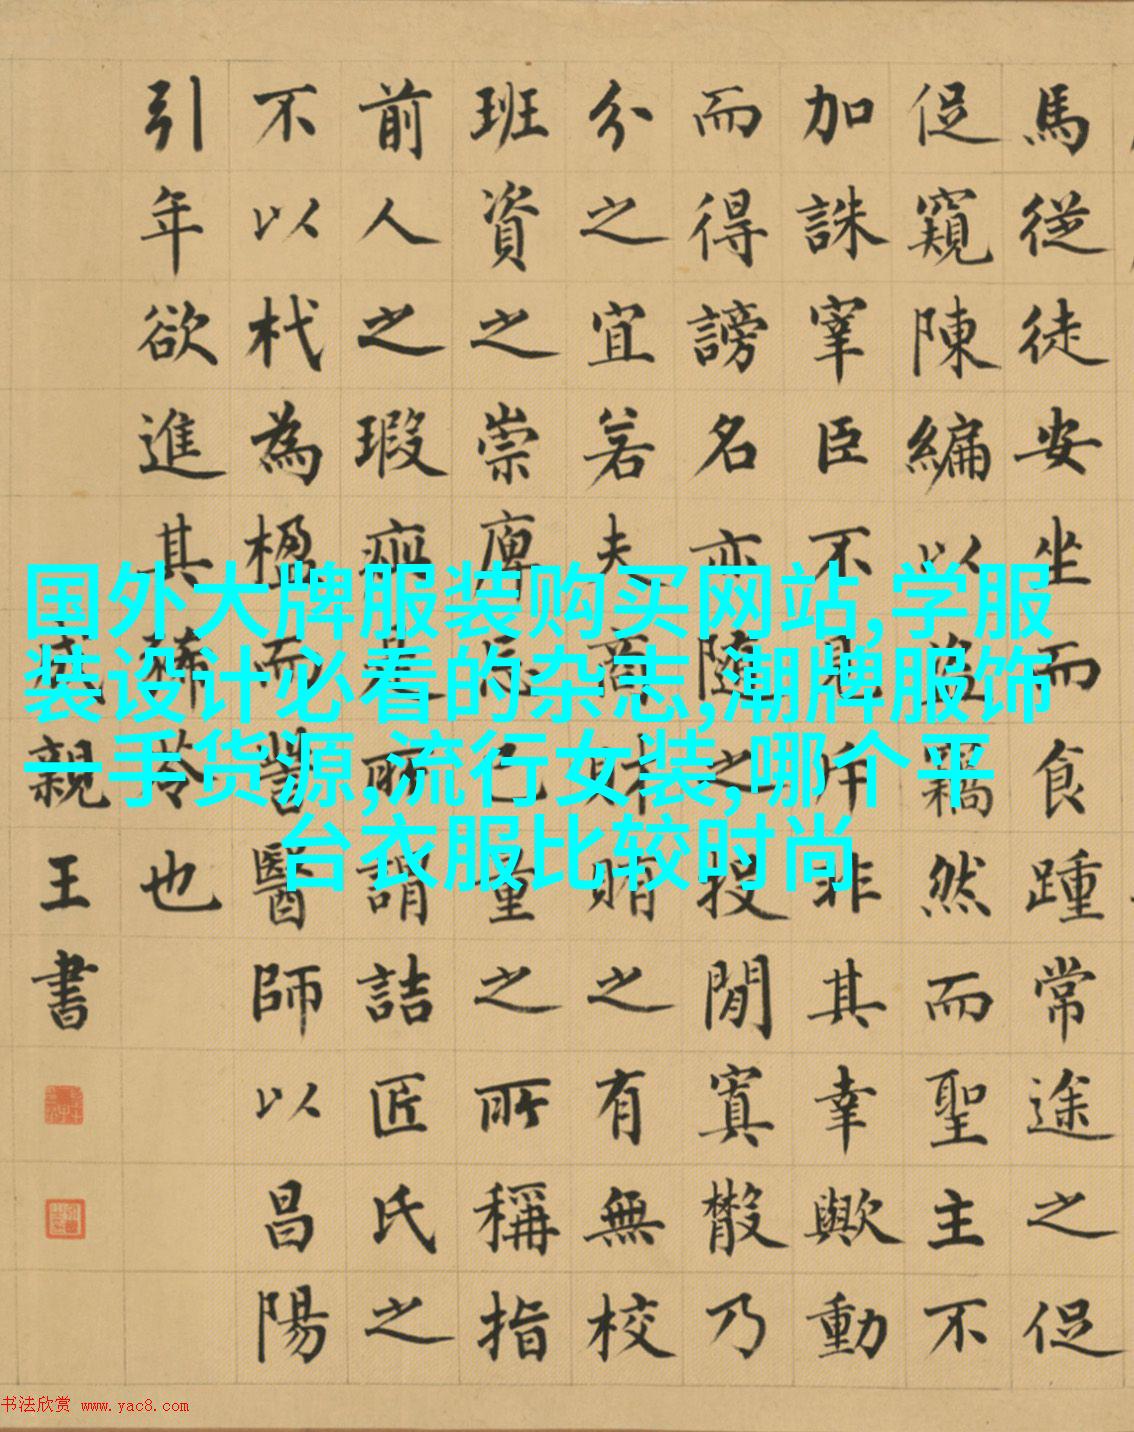 馬從徒安坐而食踵常途之促
促窺陳編以盜竊然而聖主不
加誅宰臣不見斥非其幸歟動
而得謗名亦隨之投閒寘散乃
分之宜若夫商財賄之有無校
班資之崇庳忘己量之所稱指
前人之瑕疵是所謂詰匠氏之
不以杙為楹而訾醫師以昌陽
引年欲進其豨苓也
成親王書
国外大牌服装购买网站,学服
装设计必看的杂志,潮牌服饰
一手货源,流行女装,哪个平
台衣服比较时尚
书法欣赏 www.yac8.com